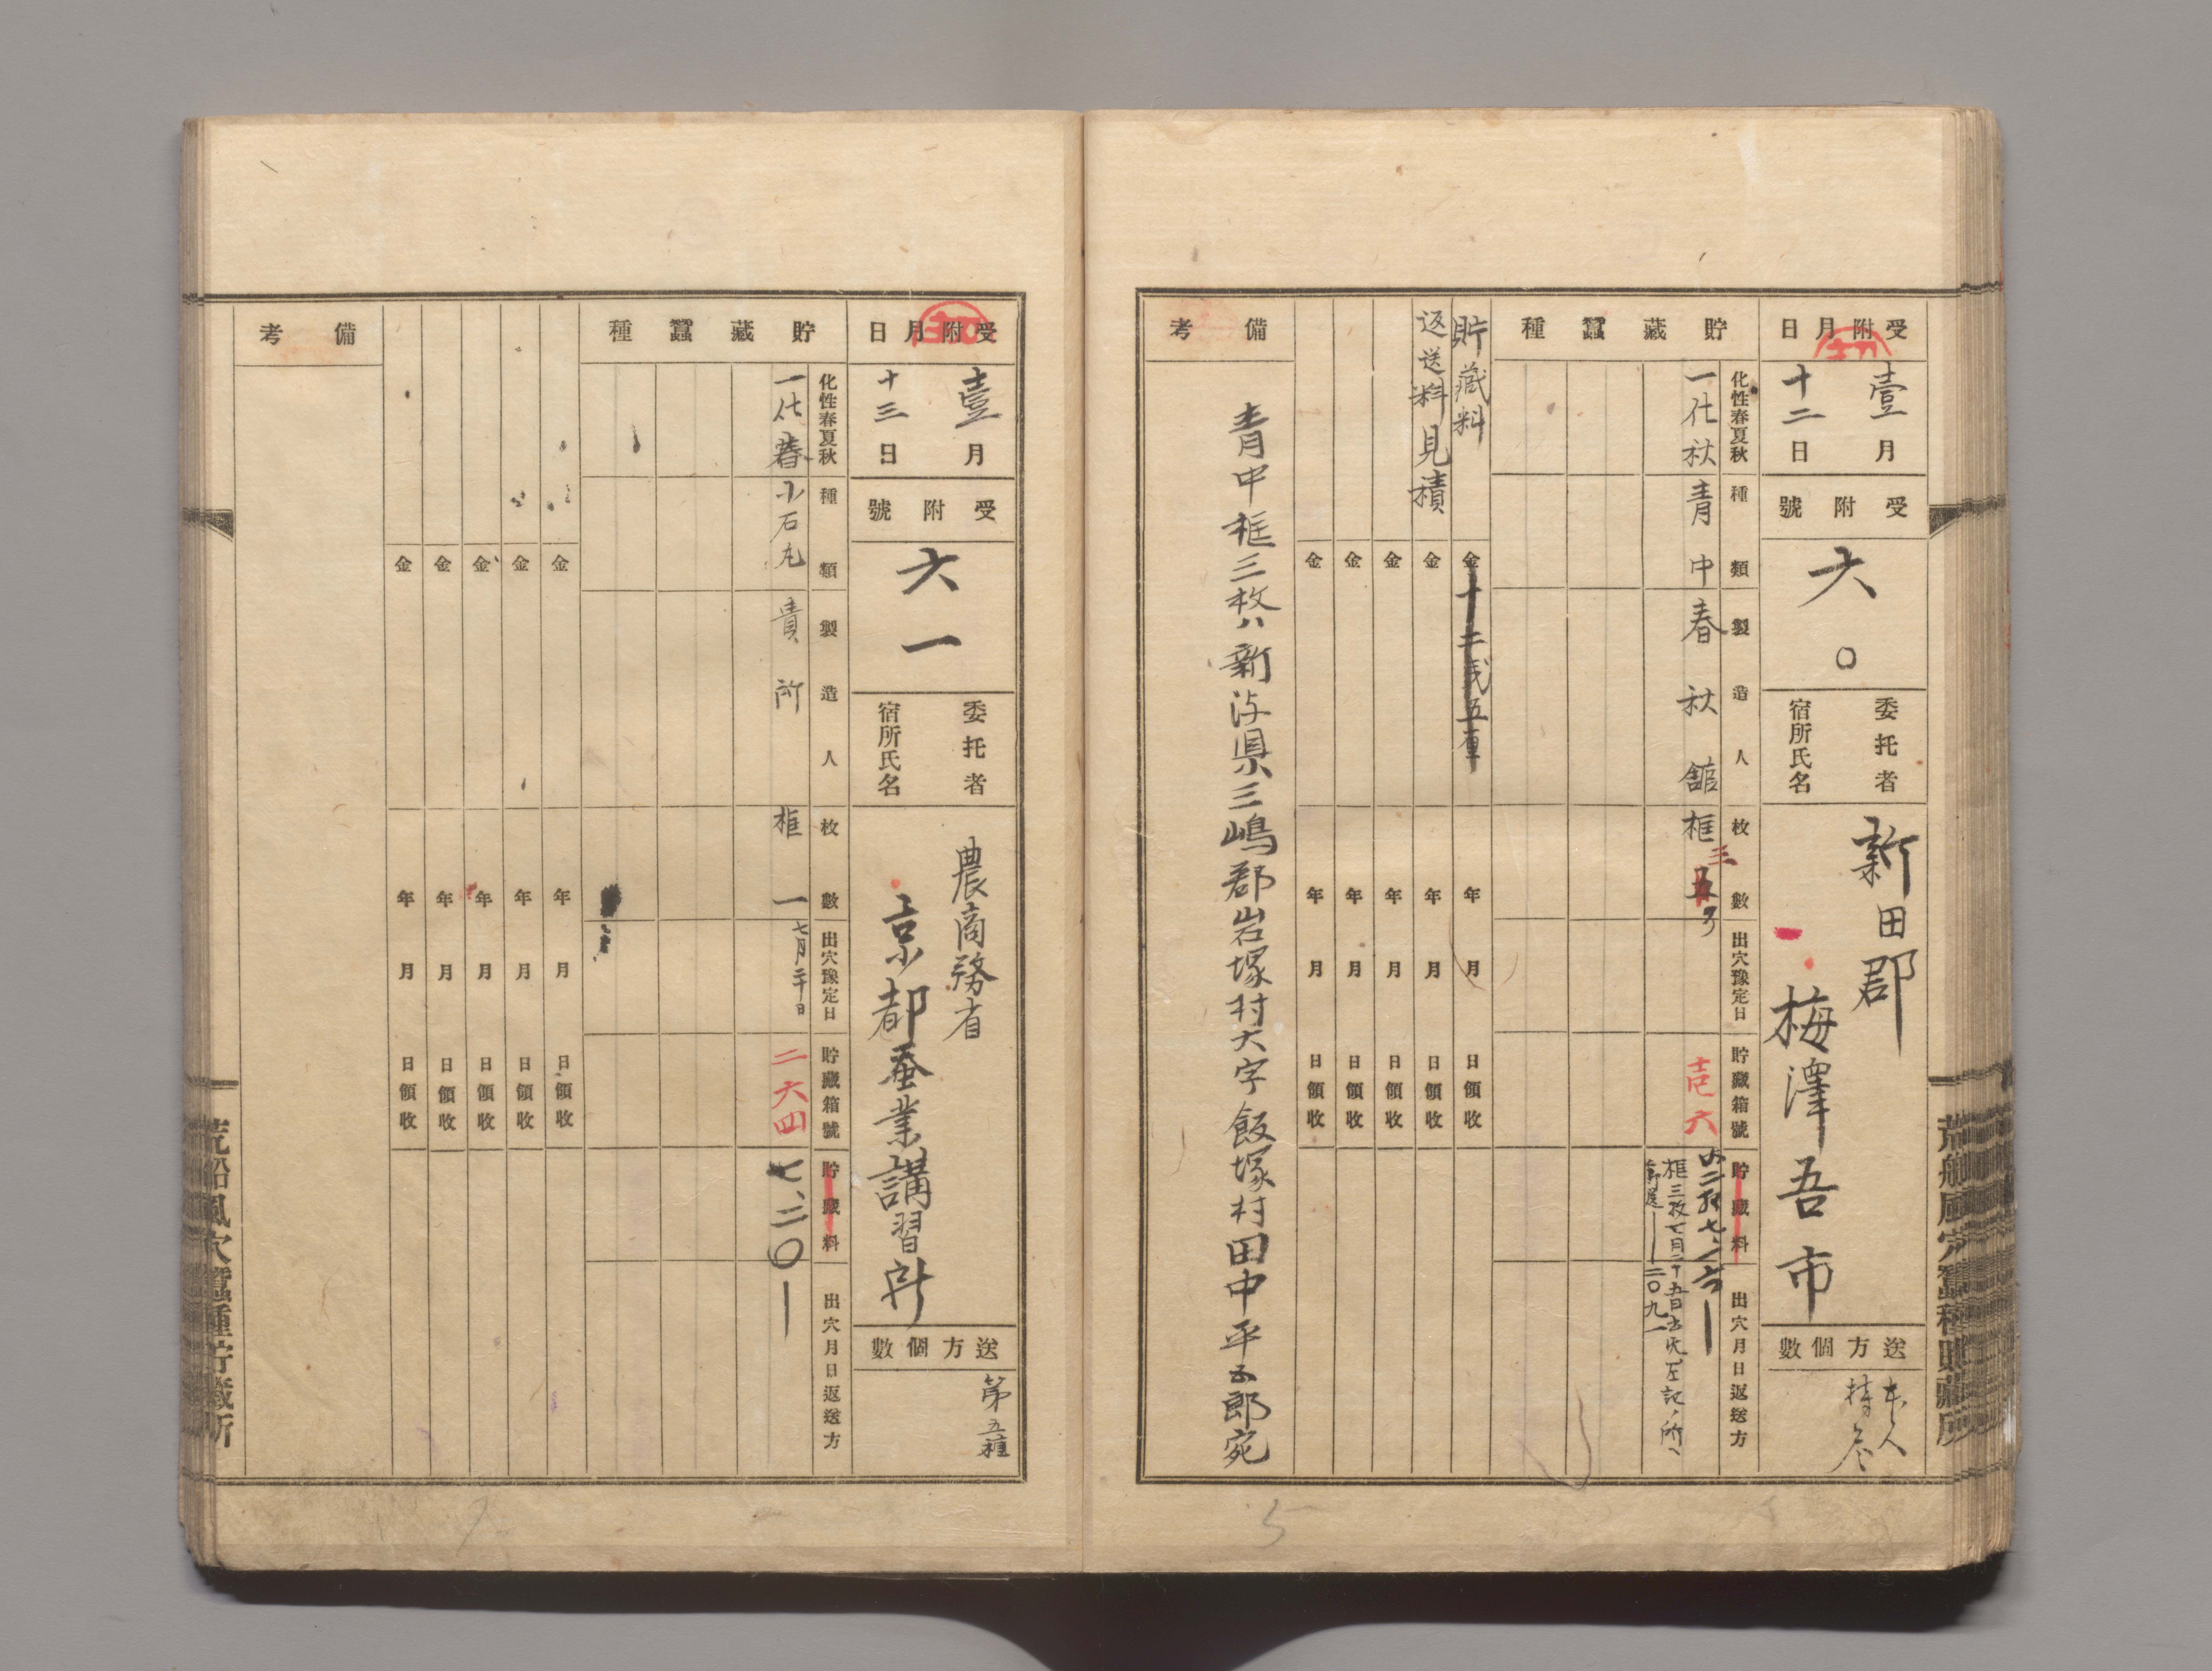 受附月日
壹月
十二日
受附號
六〇
委托者
宿所氏名
新田郡
梅澤吾市
送方個數
本人
持参
貯藏蠶種
化性春夏秋
種類
製造人
枚數
出穴豫定日
貯藏箱號
貯藏料
出穴月日返送方
一化秋
青中
春秋舘
框三
壱六
框三枚七月二十五日出穴左記ノ所ヘ
貯藏料
金十二戋五厘
年月日領收
返送料見積
金
年月日領收
金
年月日領收
金
年月日領收
金
年月日領收
備考
青中框三枚ハ新潟県三嶋郡岩塚村大字飯塚村田中平五郎宛
荒船風穴蠶種貯藏所
受附月日
壹月
十三日
受附號
六一
委托者
宿所氏名
農商務省
京都蚕業講習所
送方個數
第五種
貯藏蠶種
化性春夏秋
種類
製造人
枚數
出穴豫定日
貯藏箱號
貯藏料
出穴月日返送方
一化春
小石丸
貴所
框一
七月二十日
二六四
七、二〇
金
年月日領收
金
年月日領收
金
年月日領收
金
年月日領收
金
年月日領收
備考
荒船風穴蠶種貯藏所